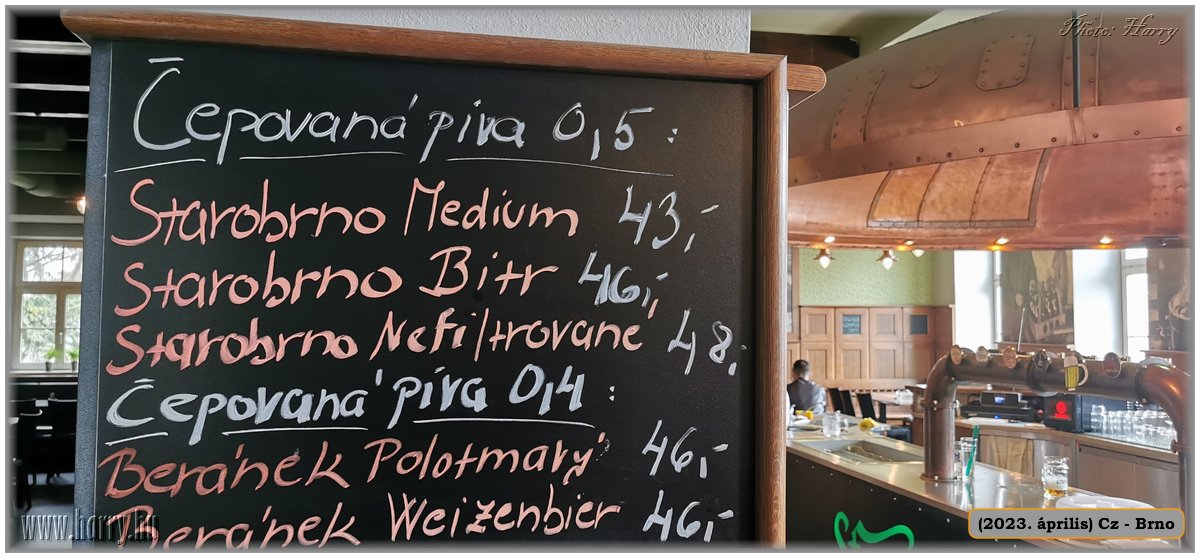 Photo: Harry
Čepovaná piva 0,5:
Starobrno Medium 43,-
Starobrno Bitr 46,-
Starobrno Nefiltrované 48,-
Čepovaná piva 0,4:
Beránek Polotmavý 46,-
Beránek Weizenbier 46,-
www.harry.hu
(2023. április) Cz - Brno